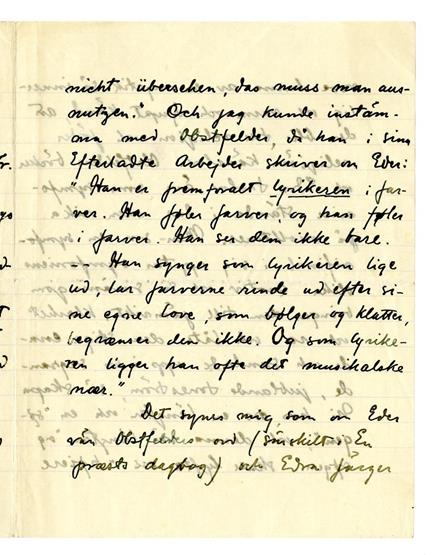 nicht übersehen, das muss man aus-
nutzen." Och jag kunde instäm-
ma med Obstfelder, då han i sina
Efterladte Arbejder skriver om Eder:
"Han er fremforalt lyrikeren i far-
ver. Han føler farver og han føler
i farver. Han ser dem ikke bare.
-- Han synger som lyrikeren lige
ud, lar farverne rinde ud efter si-
ne egne love, som bølger og klatter,
begrænser dem ikke. Og som lyrike-
ren ligger han ofte det musikalske
nær."
Det synes mig, som om Eder
vän Obstfelders ord (särskilt i En
præsts dagbog) och Edra färger